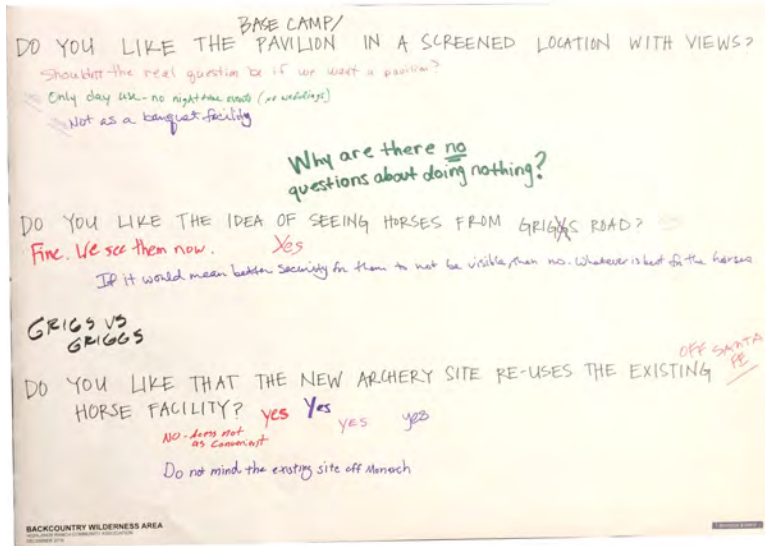 BASE CAMP/
DO YOU LIKE THE PAVILION IN A SCREENED LOCATION WITH VIEWS?
Shouldn't the real question be if we want a pavilion?
Only day use - no night time events (no weddings)
Not as a banquet facility
Why are there no
questions about doing nothing?
DO YOU LIKE THE IDEA OF SEEING HORSES FROM GRIGGS ROAD?
Fine. We see them now. Yes
If it would mean better security for them to not be visible, then no. Whatever is best for the horses
GRIGS VS
GRIGGS
OFF SANTA
FE
DO YOU LIKE THAT THE NEW ARCHERY SITE RE-USES THE EXISTING
HORSE FACILITY? yes Yes YES yes
NO - does not
as convenient
Do not mind the existing site off Monarch
BACKCOUNTRY WILDERNESS AREA
HIGHLANDS RANCH COMMUNITY ASSOCIATION